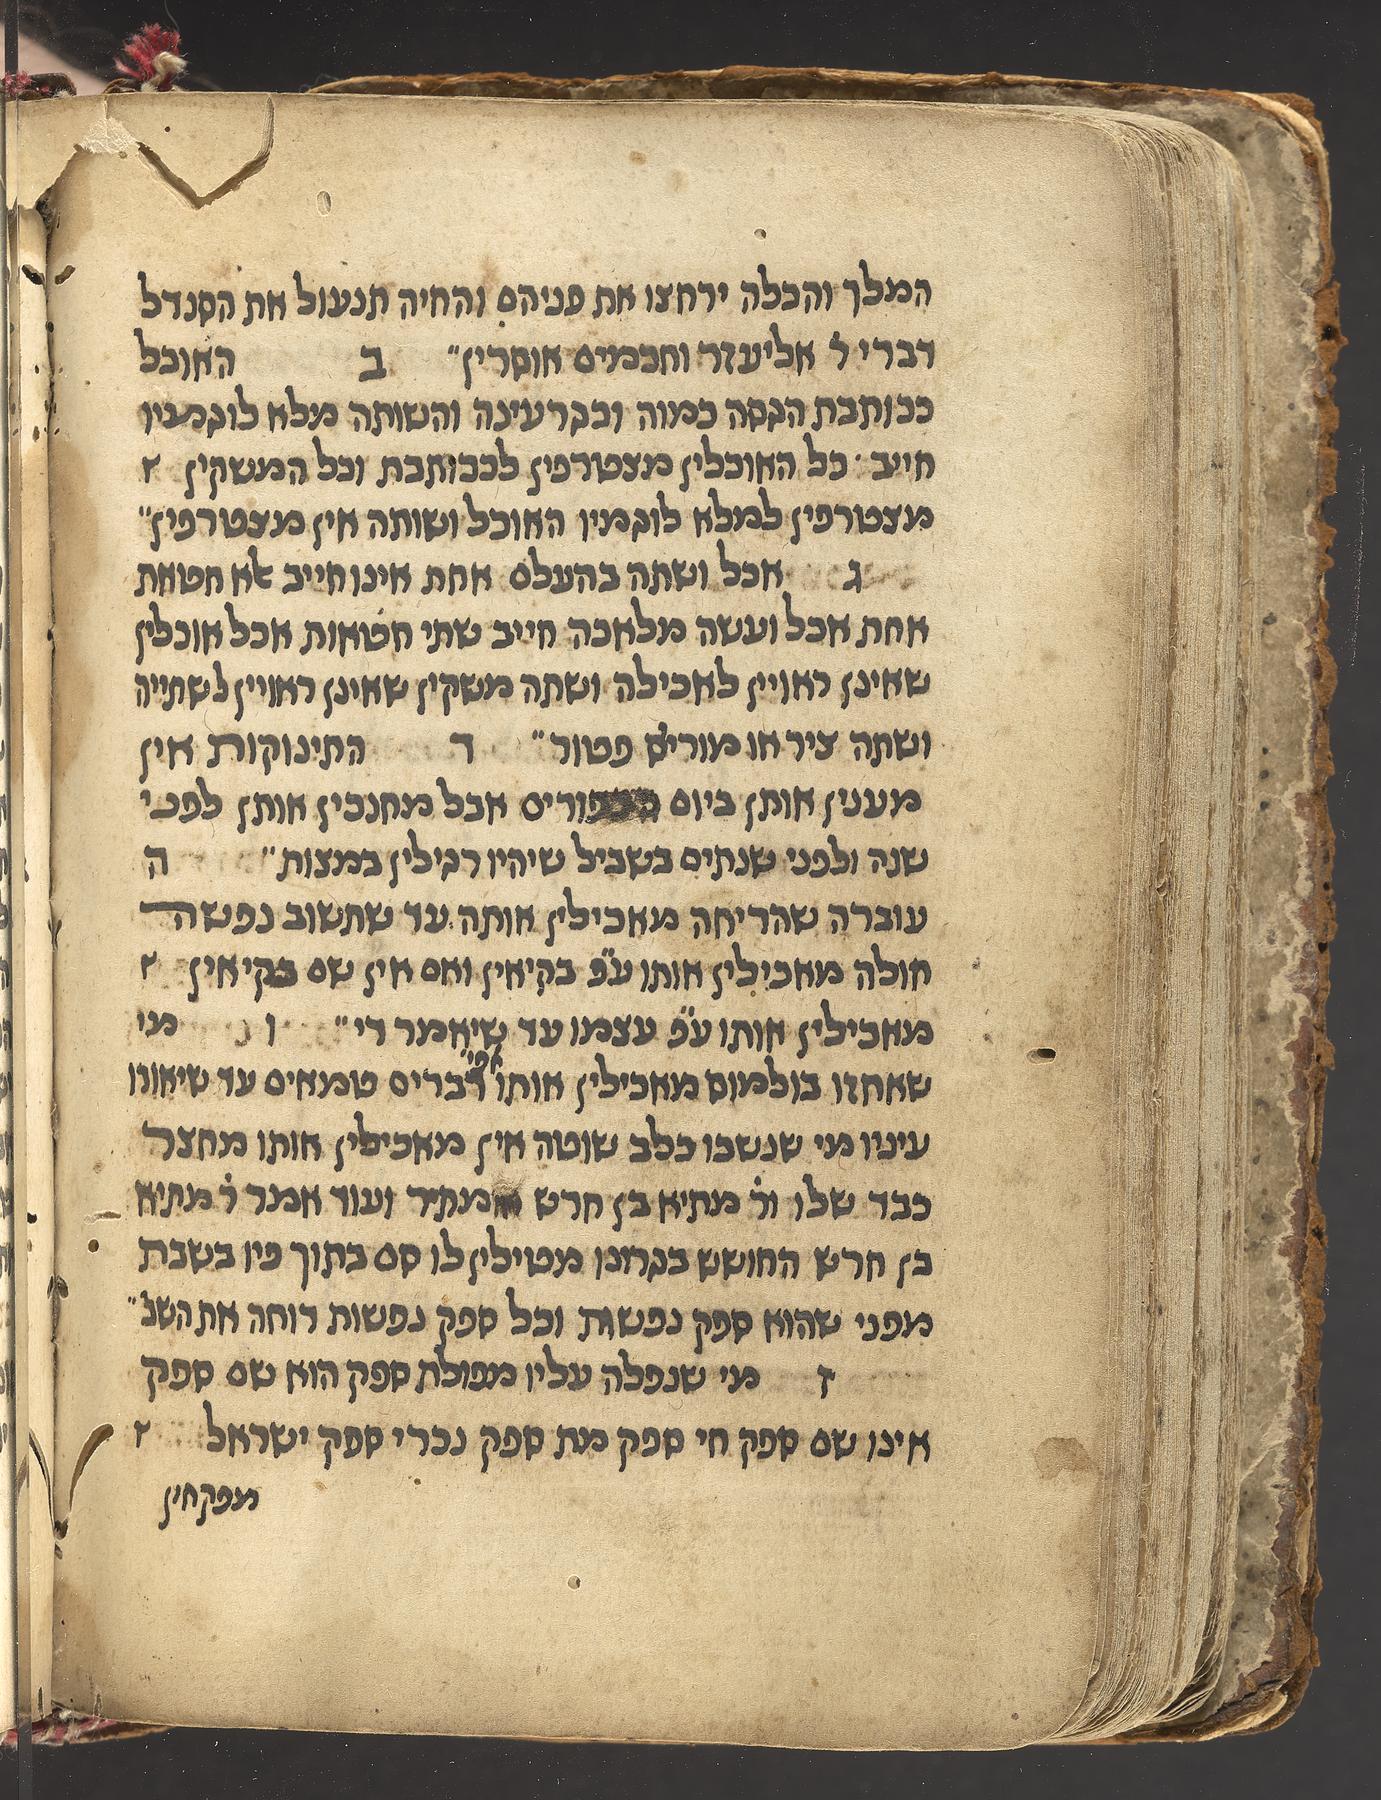 המלך והכלה ירחצו את פניהם והחיה תנעול את הסנדל
דברי ר' אליעזר וחכמים אוסרין״ ב האוכל
ככותבת הגסה כמוה וכגרעינה והשותה מלא לוגמיו
חייב · כל האוכלין מצטרפין לככותבת וכל המשקין
מצטרפין למלא לוגמיו האוכל ושותה אין מצטרפין״
ג אכל ושתה בהעלם אחת אינו חייב אלא חטאת
אחת אכל ועשה מלאכה חייב שתי חטאות אכל אוכלין
שאינן ראויין לאכילה ושתה משקין שאינן ראויין לשתייה
ושתה ציר או מורייס פטור״ ד התינוקות אין
מענין אותן ביום הכפורים אבל מחנכין אותן לפני
שנה ולפני שנתים בשביל שיהיו רגילין במצות״ ה
עוברה שהריחה מאכילין אותה עד שתשוב נפשה
חולה מאכילין אותו ע״פ בקיאין ואם אין שם בקיאין
מאכילין אותו ע״פ עצמו עד שיאמר די״ ו מי
שאחזו בולמוס מאכילין אותו אפי' דברים טמאים עד שיאורו
עיניו מי שנשכו כלב שוטה אין מאכילין אותו מחצר
כבד שלו ור' מתיא בן חרש מתיר ועוד אמר ר' מתיא
בן חרש החושש בגרונו מטילין לו סם בתוך פיו בשבת
מפני שהוא ספק נפשות וכל ספק נפשות דוחה את השב'״
ז מי שנפלה עליו מפולת ספק הוא שם ספק
אינו שם ספק חי ספק מת ספק נכרי ספק ישראל
מפקחין